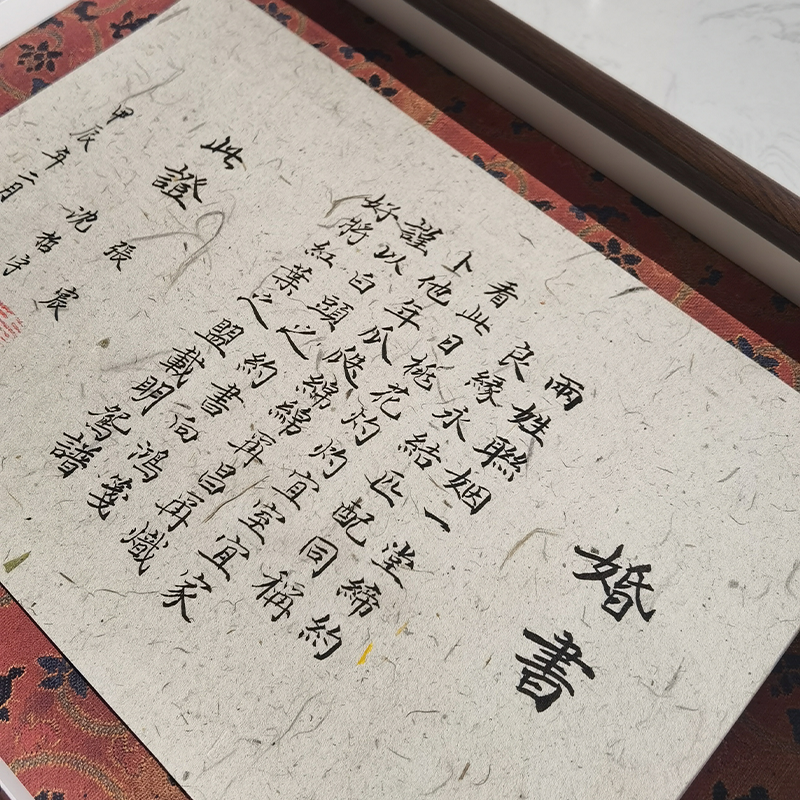 婚書
兩姓聯姻一堂締約
良緣永結匹配同稱
看此日桃花灼灼宜室宜家
卜他年瓜瓞綿綿再昌再熾
謹以白頭之約書向鴻箋
好將紅葉之盟載明鴛譜
此證
張宸
沈哲
甲辰年二月